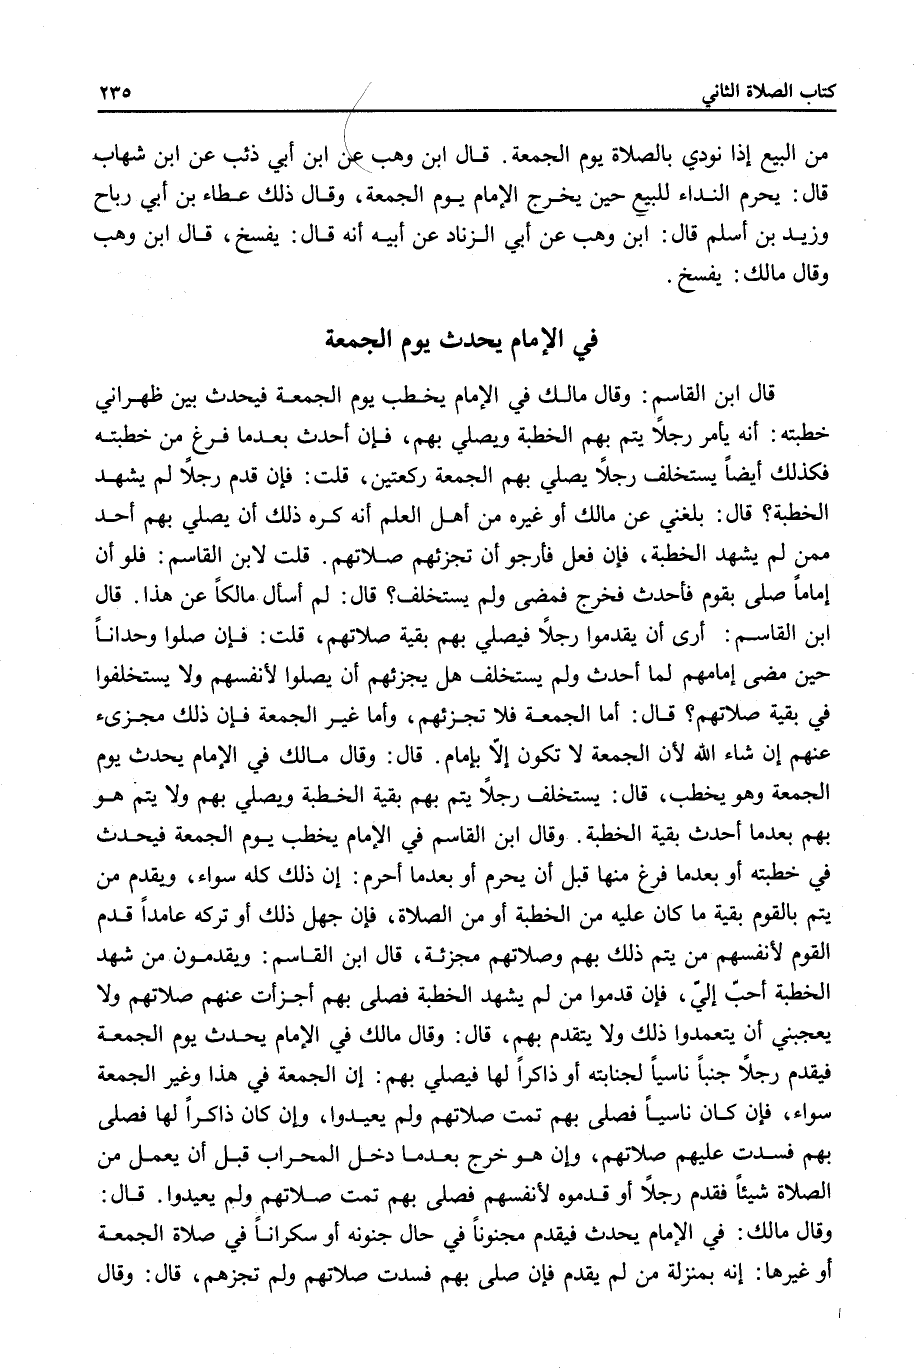 كتاب الصلاة الثاني ٢٣٥
من البيع إذا نودي بالصلاة يوم الجمعة. قال ابن وهب عن ابن أبي ذئب عن ابن شهاب
قال: يحرم النداء للبيع حين يخرج الإمام يوم الجمعة، وقال ذلك عطاء بن أبي رباح
وزيد بن أسلم قال: ابن وهب عن أبي الزناد عن أبيه أنه قال: يفسخ، قال ابن وهب
وقال مالك: يفسخ.
في الإمام يحدث يوم الجمعة
قال ابن القاسم: وقال مالك في الإمام يخطب يوم الجمعة فيحدث بين ظهراني
خطبته: أنه يأمر رجلاً يتم بهم الخطبة ويصلي بهم، فإن أحدث بعدما فرغ من خطبته
فكذلك أيضاً يستخلف رجلاً يصلي بهم الجمعة ركعتين، قلت: فإن قدم رجلاً لم يشهد
الخطبة؟ قال: بلغني عن مالك أو غيره من أهل العلم أنه كره ذلك أن يصلي بهم أحد
ممن لم يشهد الخطبة، فإن فعل فأرجو أن تجزئهم صلاتهم. قلت لابن القاسم: فلو أن
إماماً صلى بقوم فأحدث فخرج فمضى ولم يستخلف؟ قال: لم أسأل مالكاً عن هذا. قال
ابن القاسم: أرى أن يقدموا رجلاً فيصلي بهم بقية صلاتهم، قلت: فإن صلوا وحداناً
حين مضى إمامهم لما أحدث ولم يستخلف هل يجزئهم أن يصلوا لأنفسهم ولا يستخلفوا
في بقية صلاتهم؟ قال: أما الجمعة فلا تجزئهم، وأما غير الجمعة فإن ذلك مجزىء
عنهم إن شاء الله لأن الجمعة لا تكون إلّا بإمام. قال: وقال مالك في الإمام يحدث يوم
الجمعة وهو يخطب، قال: يستخلف رجلاً يتم بهم بقية الخطبة ويصلي بهم ولا يتم هو
بهم بعدما أحدث بقية الخطبة. وقال ابن القاسم في الإمام يخطب يوم الجمعة فيحدث
في خطبته أو بعدما فرغ منها قبل أن يحرم أو بعدما أحرم: إن ذلك كله سواء، ويقدم من
يتم بالقوم بقية ما كان عليه من الخطبة أو من الصلاة، فإن جهل ذلك أو تركه عامداً قدم
القوم لأنفسهم من يتم ذلك بهم وصلاتهم مجزئة، قال ابن القاسم: ويقدمون من شهد
الخطبة أحبّ إليّ، فإن قدموا من لم يشهد الخطبة فصلى بهم أجزأت عنهم صلاتهم ولا
يعجبني أن يتعمدوا ذلك ولا يتقدم بهم، قال: وقال مالك في الإمام يحدث يوم الجمعة
فيقدم رجلاً جنباً ناسياً لجنابته أو ذاكراً لها فيصلي بهم: إن الجمعة في هذا وغير الجمعة
سواء، فإن كان ناسياً فصلى بهم تمت صلاتهم ولم يعيدوا، وإن كان ذاكراً لها فصلى
بهم فسدت عليهم صلاتهم، وإن هو خرج بعدما دخل المحراب قبل أن يعمل من
الصلاة شيئاً فقدم رجلاً أو قدموه لأنفسهم فصلى بهم تمت صلاتهم ولم يعيدوا. قال:
وقال مالك: في الإمام يحدث فيقدم مجنوناً في حال جنونه أو سكراناً في صلاة الجمعة
أو غيرها: إنه بمنزلة من لم يقدم فإن صلى بهم فسدت صلاتهم ولم تجزهم، قال: وقال